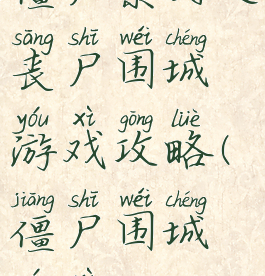 sāng shī wéi chéng
丧尸围城
yóu xì gōng lüè
游戏攻略(
jiāng shī wéi chéng
僵尸围城